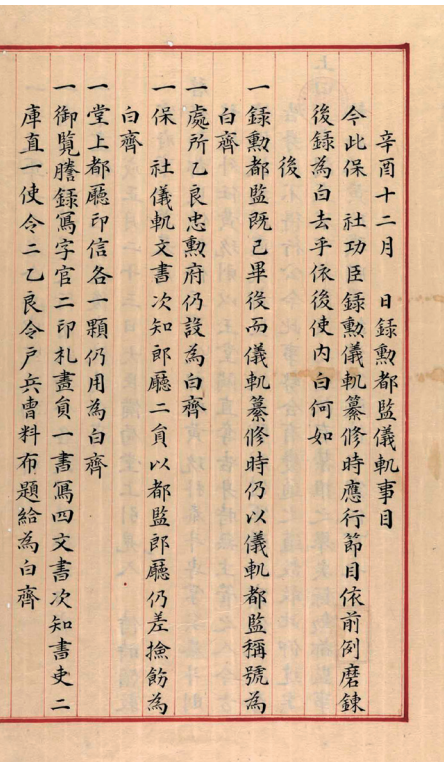 辛酉十二月 日錄勳都監儀軌事目
今此保 社功臣錄勳儀軌纂修時應行節目依前例磨鍊
後錄為白去乎依後使內白何如
後
一錄勳都監旣已畢後而儀軌纂修時仍以儀軌都監稱號為
白齊
一處所乙良忠勳府仍設為白齊
一保 社儀軌文書次知郎廳二員以都監郎廳仍差撿飭為
白齊
一堂上都廳印信各一顆仍用為白齊
一御覽謄錄寫字官二印札畫員一書寫四文書次知書吏二
庫直一使令二乙良令戶兵曹料布題給為白齊